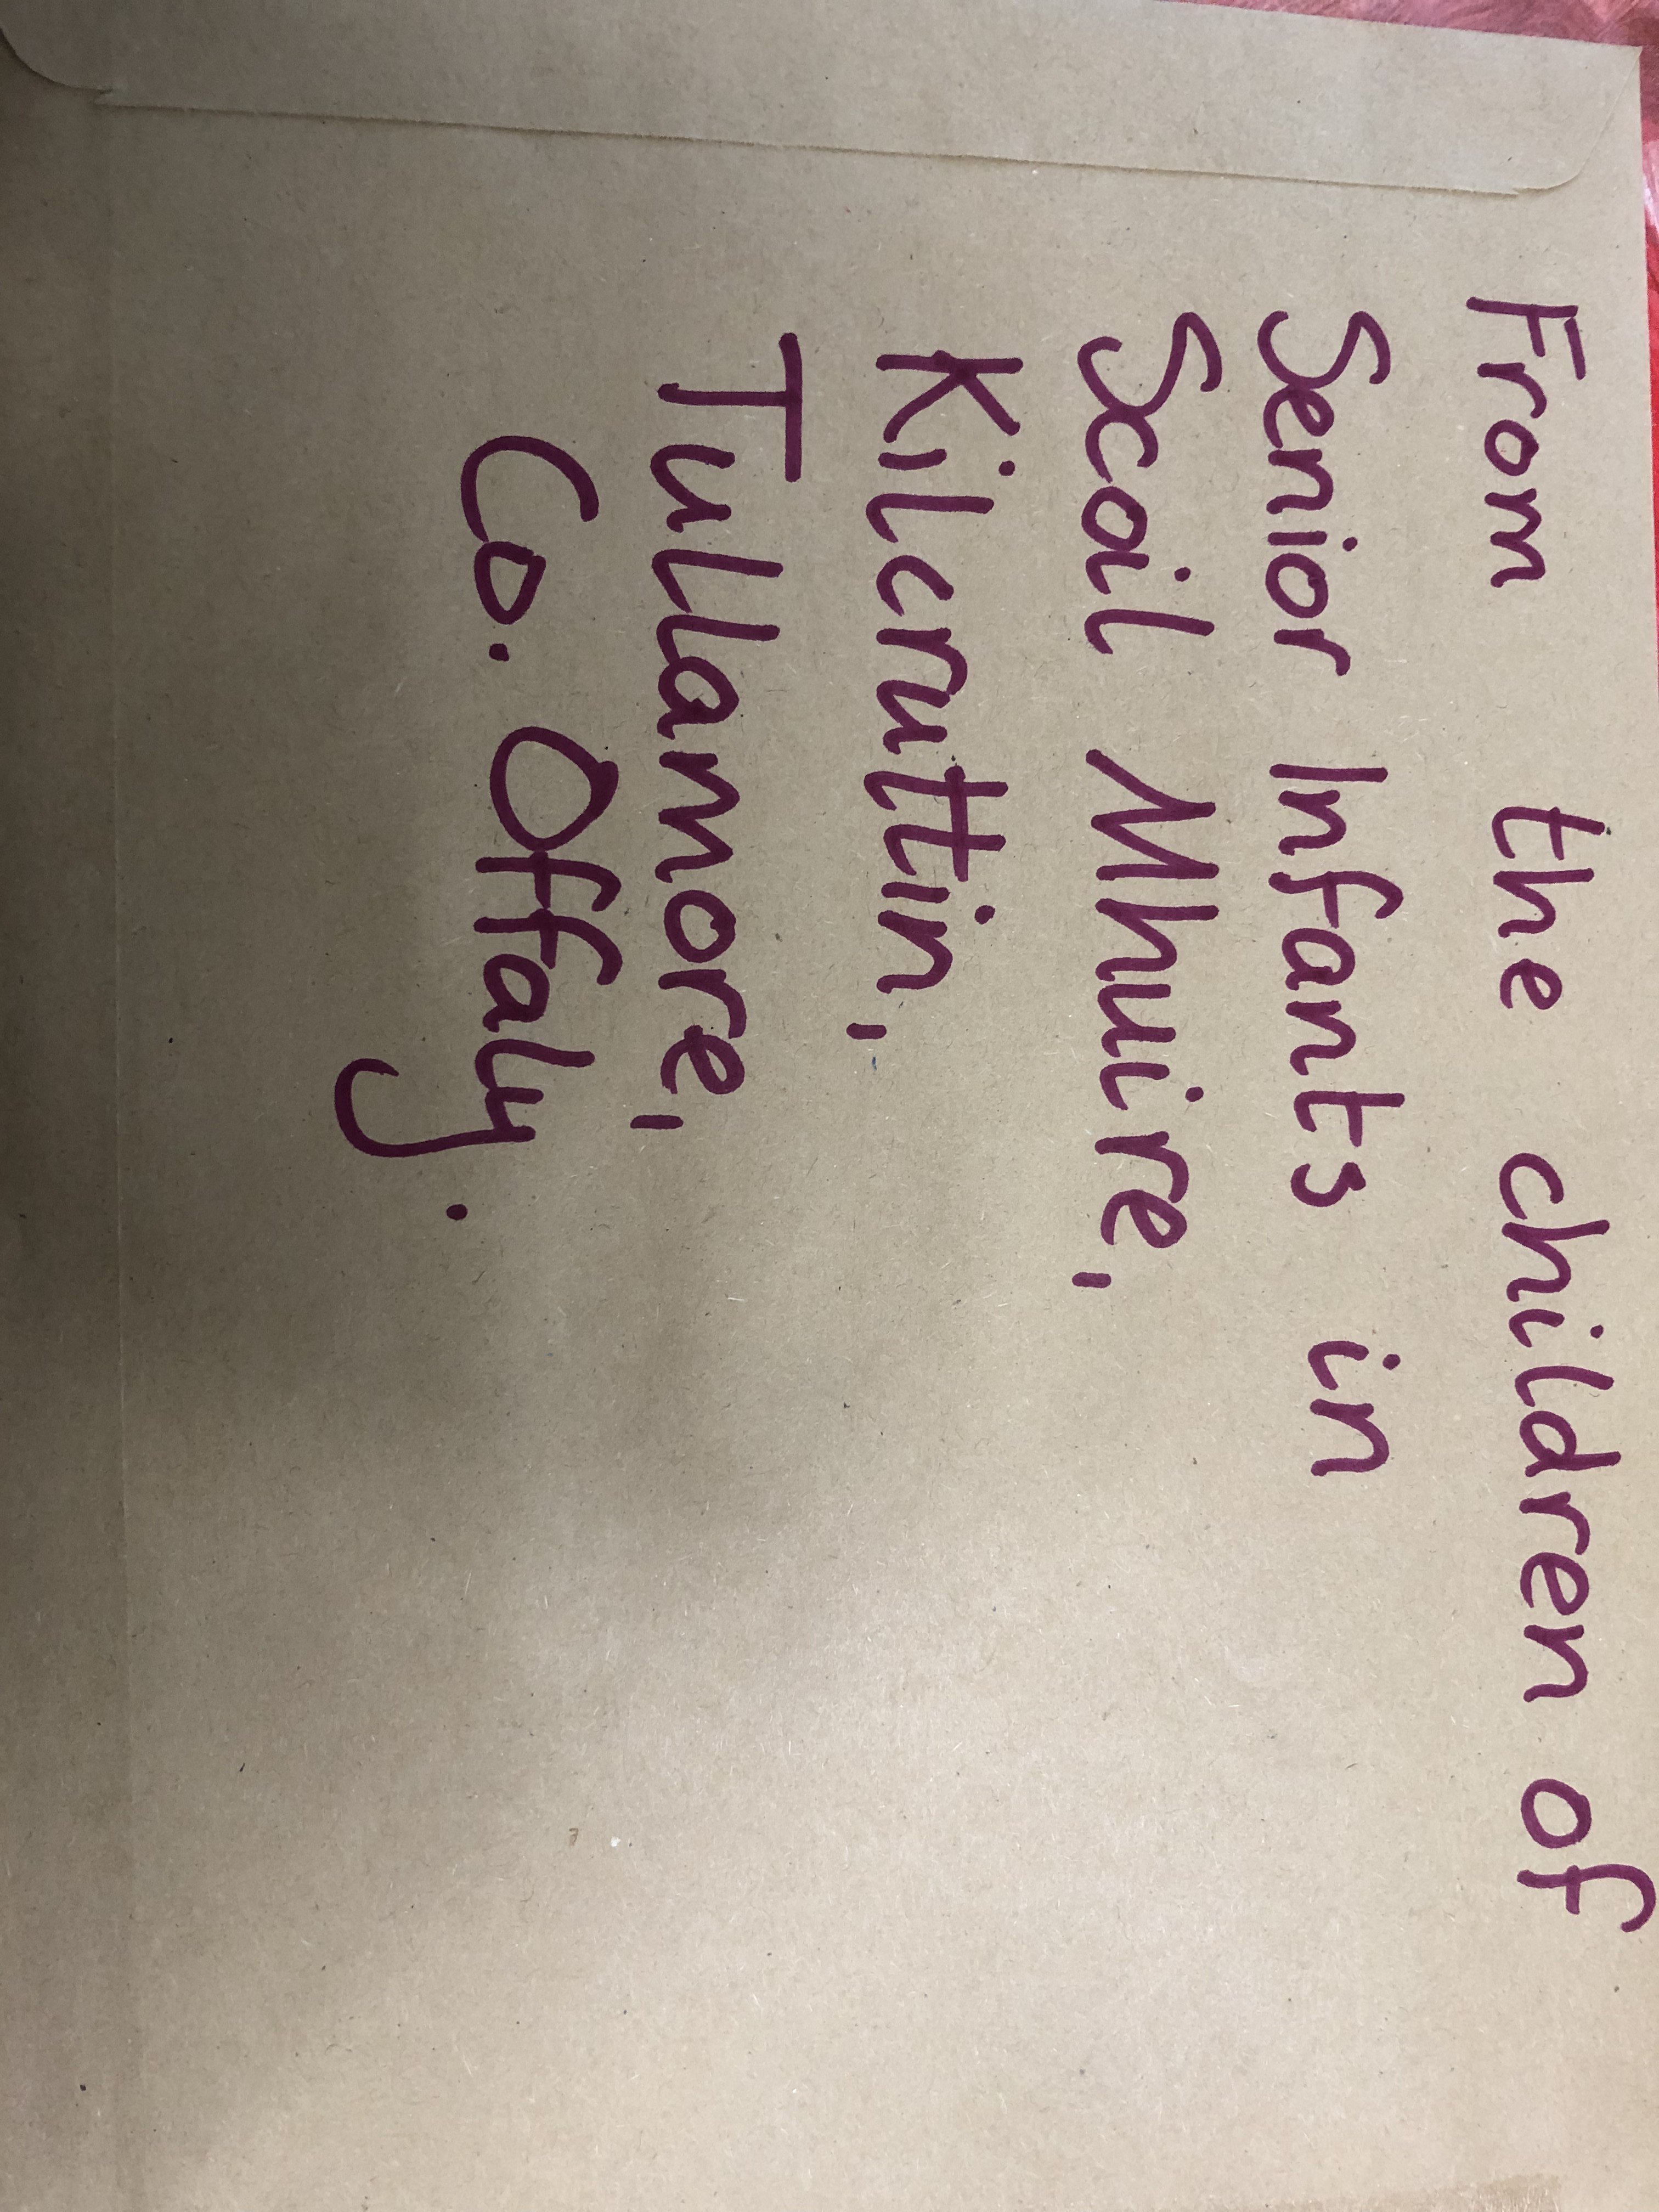 From the children of
Senior Infants in
Scoil Mhuire,
Kilcruttin,
Tullamore,
Co. Offaly.